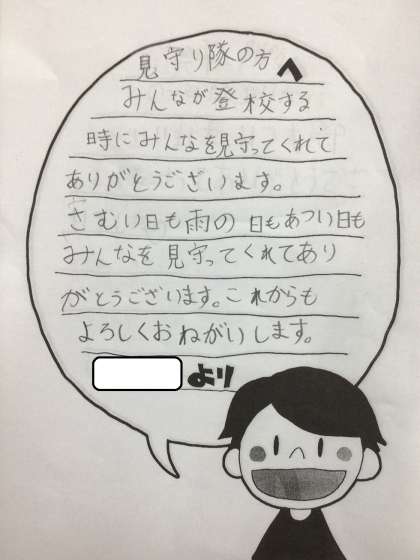 見守り隊の方へ
みんなが登校する
時にみんなを見守ってくれて
ありがとうございます。
さむい日も雨の日もあつい日も
みんなを見守ってくれてあり
がとうございます。これからも
よろしくおねがいします。
より